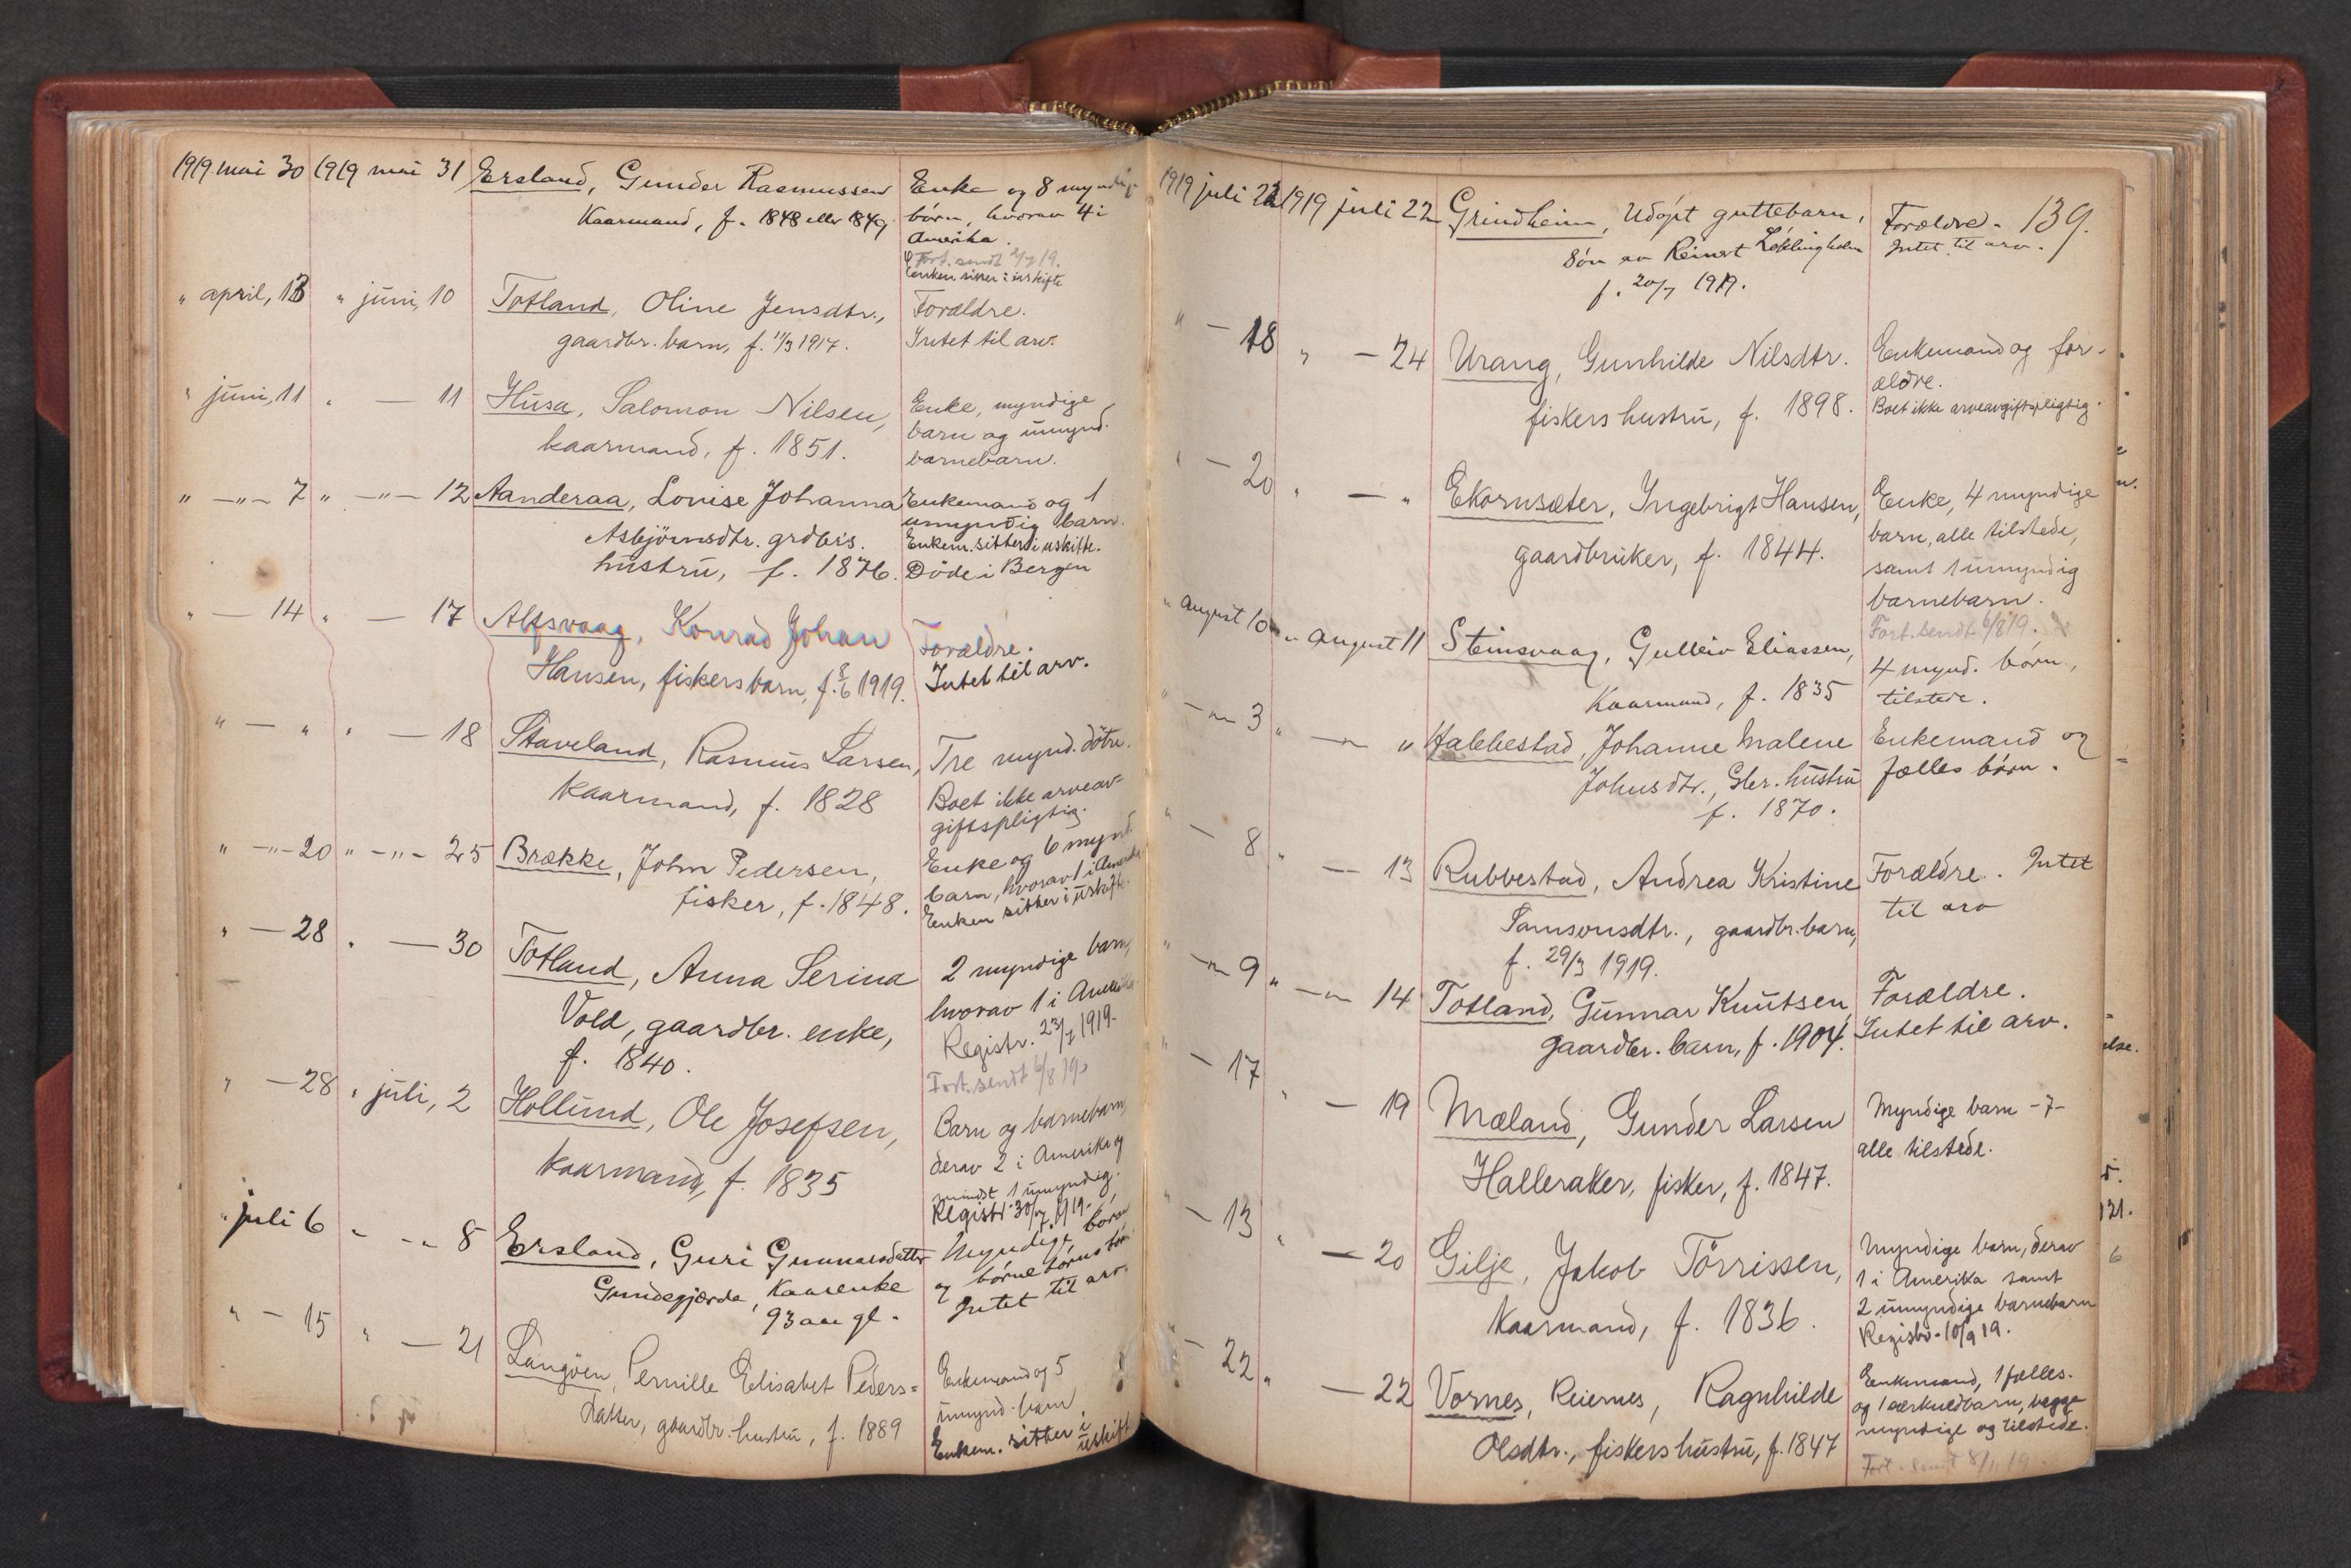 1919 mai 30 1919 mai 31 Ersland, Gunder Rasmussen Enke og 8 myndige
Kaarmand, f. 1848 eller 1849 børn, hvorav 4 i
Amerika.
Fort. sendt 2/7 19.
Enken sitter i uskifte
" april, 13 " juni, 10 Totland, Oline Jensdtr., Forældre.
gaardbr. barn, f. 11/3 1917. Intet til arv.
" juni, 11 " — 11 Husa, Salomon Nilsen, Enke, myndige
kaarmand, f. 1851. barn og umynd.
barnebarn.
" —"— 7 " —"— 12 Aanderaa, Lovise Johanna Enkemand og 1
Asbjörnsdtr. grdbrs. umyndig barn.
hustru, f. 1876. Enkem. sitter i uskifte.
Döde i Bergen
" — 14 " — 17 Alfsvaag, Konrad Johan Forældre.
Hansen, fiskers barn, f. 8/6 1919. Intet til arv.
" — " " — 18 Staveland, Rasmus Larsen, Tre mynd. døtre.
kaarmand, f. 1828 Boet ikke arveav-
giftspligtig.
" —"— 20 " —"— 25 Brække, John Pedersen, Enke og 6 mynd.
fisker, f. 1848. barn, hvorav 1 i Amerika
Enken sitter i uskifte.
" — 28 " — 30 Totland, Anna Serina 2 myndige barn,
Vold, gaardbr. enke, hvorav 1 i Amerika
f. 1840. Registr. 23/7 1919.
Fort. sendt 6/8 19.
" — 28 " juli, 2 Hollund, Ole Josefsen, Barn og barnebarn,
kaarmand, f. 1835 derav 2 i Amerika og
mindst 1 umyndig.
Registr. 30/7 1919.
" juli 6 " —" 8 Ersland, Guri Gunnarsdatter Myndige børn
Gundegjærde, Kaarenke og børnebørns børn
93 aar gl. Intet til arv.
" — 15 " — 21 Langöen, Pernille Elisabet Peders= Enkemand og 5
datter, gaardbr. hustru, f. 1889 umynd. barn.
Enkem. sitter i
uskifte
139.
1919 juli 22 1919 juli 22 Grindheim, Udøpt guttebarn, Forældre.
Søn av Reinert Løklingholm Intet til arv.
f. 20/7 1919.
" — 18 " — 24 Urang, Gunhilde Nilsdtr. Enkemand og for-
fiskers hustru, f. 1898. ældre.
Boet ikke arveavgiftspligtig.
" — 20 " — " Ekornsæter, Ingebrigt Hansen, Enke, 4 myndige
gaardbruker, f. 1844. barn, alle tilstede,
samt 1 umyndig
barnebarn.
Fort. sendt 6/8 19.
" August 10 " August 11 Steinsvaag, Gulleiv Eliassen, 4 mynd. børn,
Kaarmand, f. 1835 tilstede.
" —"— 3 " —"— " Habbestad, Johanne Malene Enkemand og
Johnsdtr., Gbr. hustru fælles børn.
f. 1870.
" — 8 " — 13 Rubbestad, Andrea Kristine Forældre. Intet
Samsonsdtr., gaardbr. barn, til arv
f. 29/3 1919.
" —"— 9 " —"— 14 Totland, Gunnar Knutsen Forældre.
gaardbr. barn, f. 1904. Intet til arv.
" — 17 " — 19 Mæland, Gunder Larsen Myndige barn -7-
Halleraker, fisker, f. 1847. alle tilstede.
" — 13 " — 20 Gilje, Jakob Törrissen, Myndige barn, derav
kaarmand, f. 1836. 1 i Amerika samt
2 umyndige barnebarn
Registr. 10/9 19.
" — 22 " — 22 Vornes, Reiernes, Ragnhilde Enkemand, 1 fælles-
Olsdtr., fiskers hustru, f. 1847 og 1 særkuldbarn, begge
myndige og tilstede.
Fort. sendt 8/11 19.